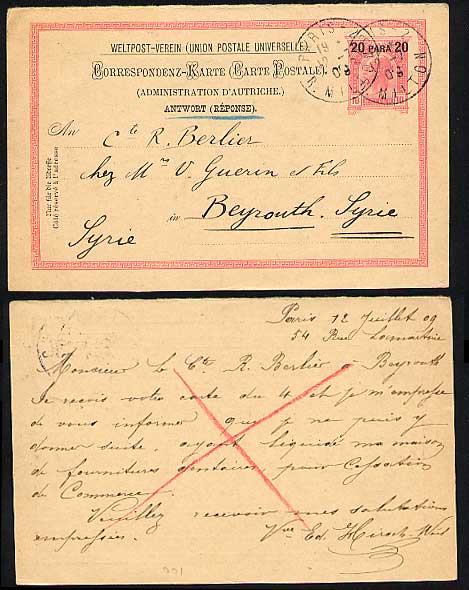 WELTPOST-VEREIN (UNION POSTALE UNIVERSELLE).
CORRESPONDENZ-KARTE (CARTE POSTALE).
(ADMINISTRATION D'AUTRICHE.)
ANTWORT (RÉPONSE).
20 PARA 20
PARIS
An
Cte R. Berlier
chez Mrs V. Guerin et Fils
in Beyrouth. Syrie
Syrie
Nur für die Adresse
Côté réservé à l'adresse
Paris 12 Juillet 09
54 Rue Lamartine
Monsieur le Cte R. Berlier à Beyrouth
Je reçois votre carte du 4 et je m'empresse
de vous informer que je ne puis y
donner suite, ayant liquidé ma maison
de fournitures dentaires, pour Cessation
de Commerce.
Veuillez recevoir mes salutations
empressées.
Vve Ed. Hirsch